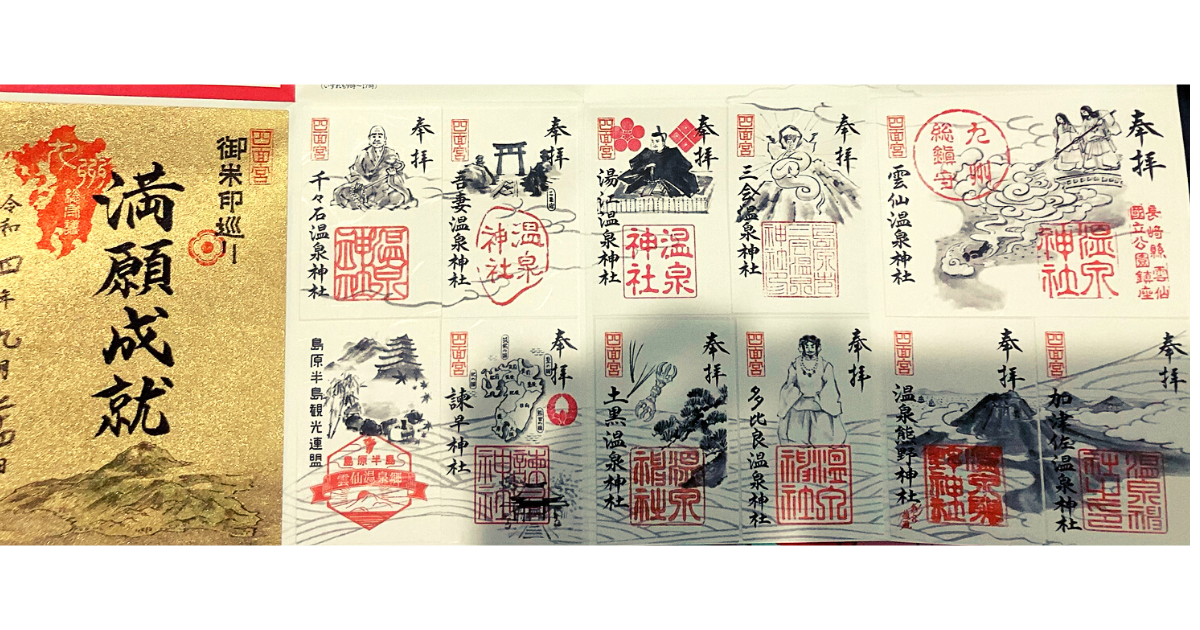 四面宮
御朱印巡り
満願成就
九州
総守護
令和四年九月二十四日
奉拝
四面宮
千々石温泉神社
温泉神社
奉拝
四面宮
吾妻温泉神社
温泉神社
奉拝
四面宮
湯江温泉神社
温泉神社
奉拝
四面宮
三会温泉神社
奉拝
四面宮
九州総鎮守
雲仙温泉神社
温泉神社
長崎縣雲仙
國立公園鎮座
島原半島観光連盟
島原半島
雲仙温泉郷
奉拝
四面宮
諫早神社
奉拝
四面宮
土黒温泉神社
温泉神社
奉拝
四面宮
多比良温泉神社
温泉神社
奉拝
四面宮
温泉熊野神社
奉拝
四面宮
加津佐温泉神社